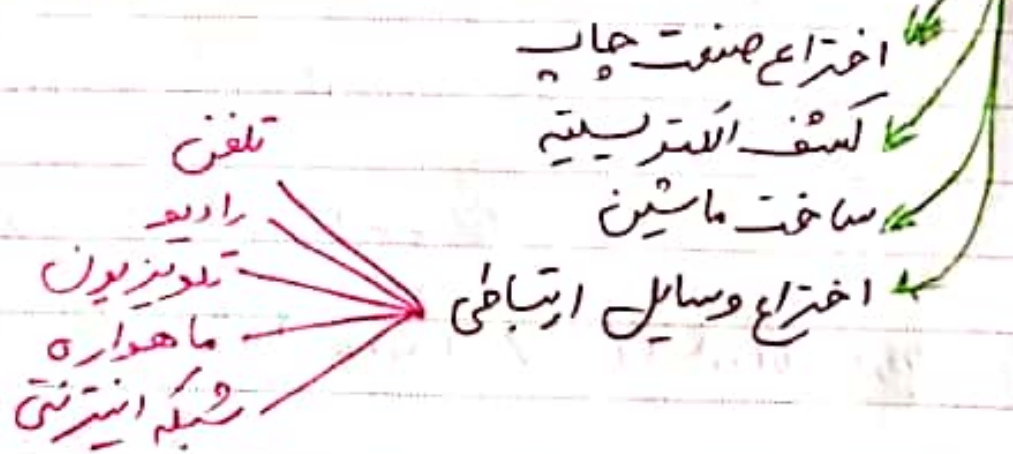 اختراع صنعت چاپ
کشف الکتریسیته
ساخت ماشین
اختراع وسایل ارتباطی
تلفن
رادیو
تلویزیون
ماهواره
شبکه اینترنتی